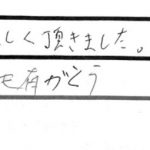 しく頂きました。
も有がとう